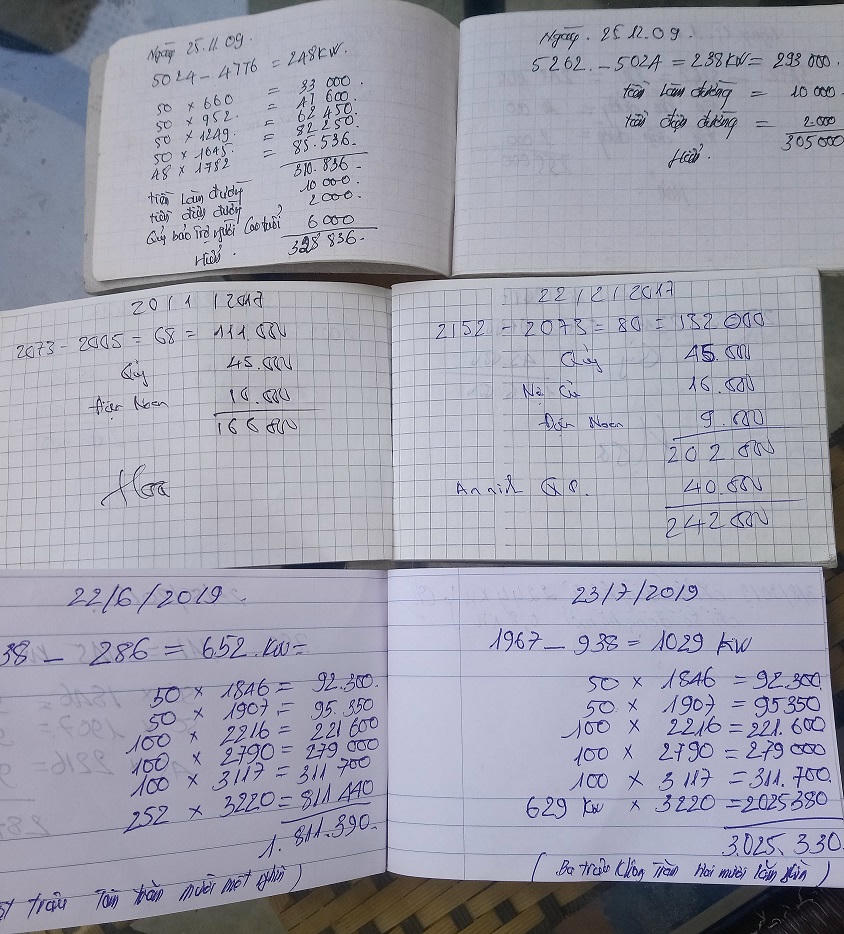 Ngày 25.11.09.
5024 - 4776 = 248 KW.
50 × 660 = 33 000.
50 × 952. = 47 600.
50 × 1249. = 62 450.
50 × 1645. = 82 250.
48 × 1782 = 85.536.
310.836.
tiền làm đường 10 000.
tiền điện đường 2 000.
Qũy bảo trợ người cao tuổi 6 000
Hiếu. 328 836.
Ngày. 25.12.09.
5262. - 5024 = 238 KW = 293 000.
tiền làm đường = 10 000.
tiền điện đường = 2.000
305 000
Hiếu.
20/1/2017
2073 - 2005 = 68 = 111.000
Qũy 45.000
Điện 10.000
166 000
Hoa
22/2/2017
2152 - 2073 = 80 = 132 000
Qũy 45.000
Nợ Cũ 16.000
Điện 9.000
202 000
40.000
242 000
22/6/2019.
38 - 286 = 652. KW =
50 × 1846 = 92.300.
50 × 1907 = 95 350
100 × 2216 = 221 600
100 × 2790 = 279 000
100 × 3117 = 311 700
252 × 3220 = 811 440
1. 811.390.
triệu Tám trăm mười một nghìn)
23/7/2019
1967 - 938 = 1029 KW
50 × 1846 = 92.300.
50 × 1907 = 95350
100 × 2216 = 221.600
100 × 2790 = 279 000
100 × 3117 = 311.700.
629 KW × 3220 = 2025380
3.025.330
(Ba triệu Không Trăm Hai mười lăm nghìn)